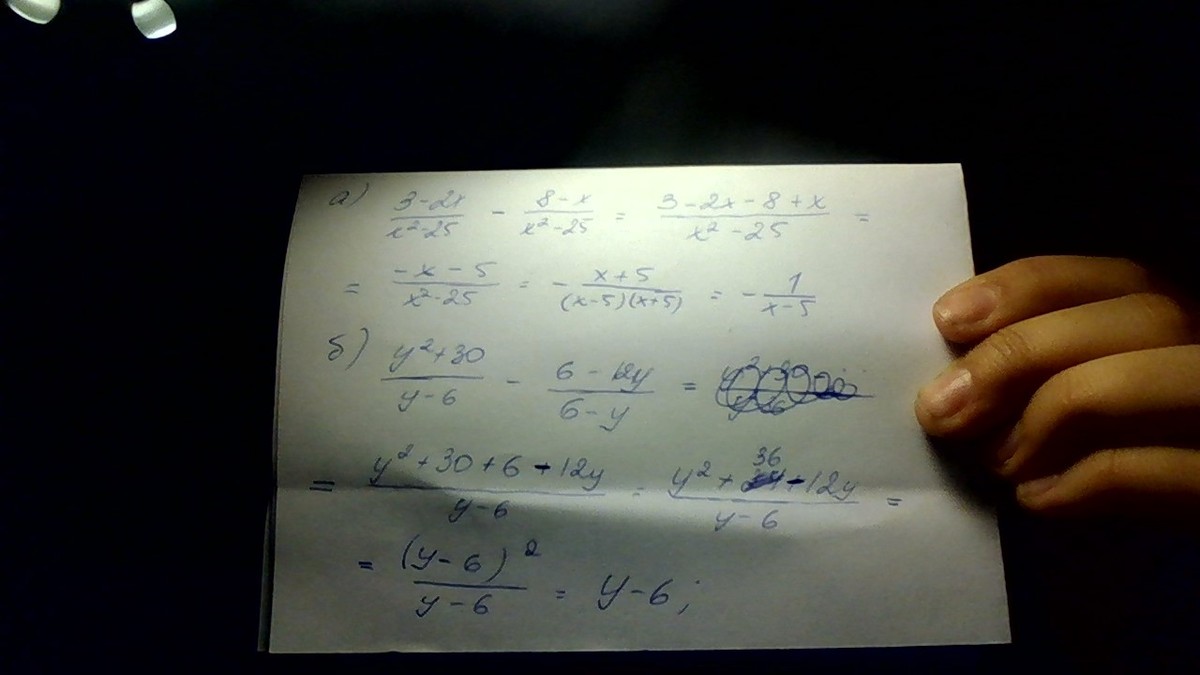 а) (3-2x)/(x²-25) - (8-x)/(x²-25) = (3-2x-8+x)/(x²-25) =
= (-x-5)/(x²-25) = -(x+5)/((x-5)(x+5)) = -1/(x-5)
б) (y²+30)/(y-6) - (6-12y)/(6-y) =
= (y²+30+6-12y)/(y-6) = (y²+36-12y)/(y-6) =
= (y-6)²/(y-6) = y-6;